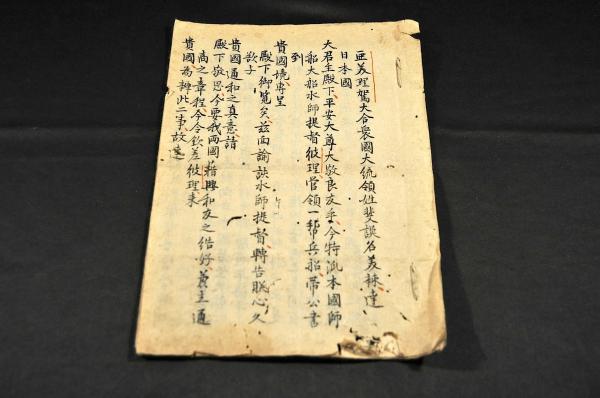 亜美理駕大合衆國大統領姓斐謨名美辣達
日本國
大君主殿下平安大尊大敬良友乎今特派本國師
船大船水師提督彼理管領一幇兵船帶公書
到
貴國境寄呈
殿下御覧矣茲面諭該水師提督轉告朕心久
欲予
貴國通和之真意請
殿下敬思今要我兩國藉興和友之結好義立通
商之章程今令欽差彼理來
貴國為轉此事故達